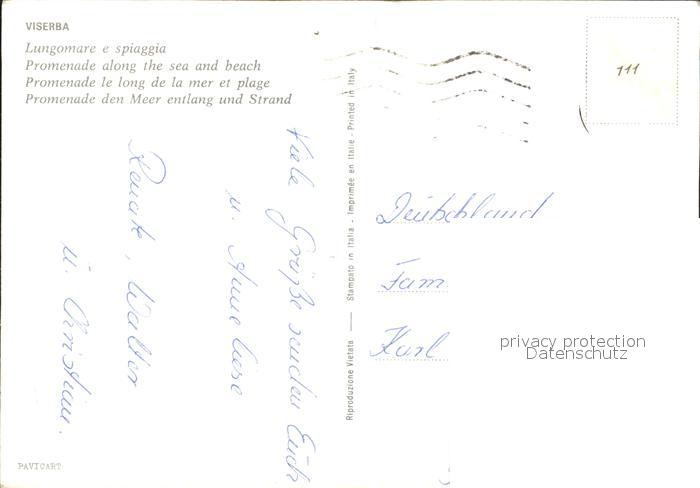 VISERBA
Lungomare e spiaggia
Promenade along the sea and beach
Promenade le long de la mer et plage
Promenade den Meer entlang und Strand
Viele Grüße senden Euch
u. Anneliese
Renate, Walter
u. Christian.
PAVICART
Riproduzione Vietata — Stampato in Italia - Imprimée en Italie - Printed in Italy
111
Deutschland
Fam
Karl
privacy protection
Datenschutz